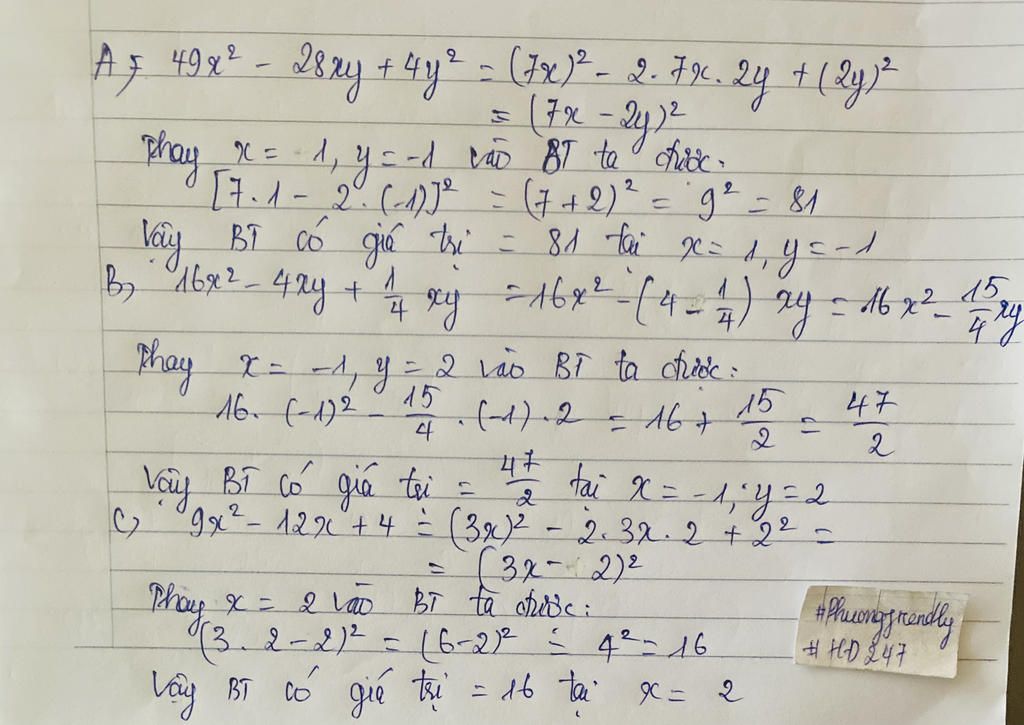 A, 49x² - 28xy + 4y² = (7x)² - 2.7x.2y + (2y)²
= (7x - 2y)²
Thay x = -1, y = -1 vào BT ta được.
[7.1 - 2.(-1)]² = (7 + 2)² = 9² = 81
Vậy BT có giá trị = 81 tại x = 1, y = -1
B, 16x² - 4xy + 1/4 xy = 16x² - (4 - 1/4) xy = 16x² - 15/4 xy
Thay x = -1, y = 2 vào BT ta được:
16.(-1)² - 15/4 .(-1).2 = 16 + 15/2 = 47/2
Vậy BT có giá trị = 47/2 tại x = -1, y = 2
C, 9x² - 12x + 4 = (3x)² - 2.3x.2 + 2² =
= (3x - 2)²
Thay x = 2 vào BT ta được:
(3.2 - 2)² = (6 - 2)² = 4² = 16
Vậy BT có giá trị = 16 tại x = 2
#Phuongfrendly
#HD247